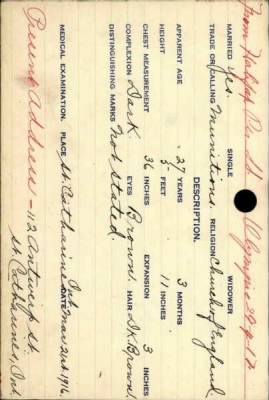 From Halifax Per S.S. Olympic
MARRIED Yes. SINGLE WIDOWER
TRADE OR CALLING Munitions. RELIGION Church of England.
DESCRIPTION.
APPARENT AGE 27 YEARS 3 MONTHS
HEIGHT 5 FEET 11 INCHES
CHEST MEASUREMENT 36 INCHES EXPANSION 3 INCHES
COMPLEXION Dark EYES Brown. HAIR Dk Brown.
DISTINGUISHING MARKS Not stated
MEDICAL EXAMINATION. PLACE St. Catharines Ont DATE Mar 21st 1916.
Present Address - 112 Antwerp St
St Catharines, Ont